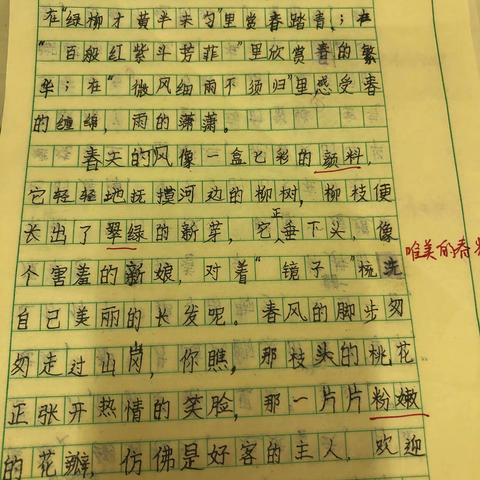 在“绿柳才黄半未匀”里赏春踏青；在
“百般红紫斗芳菲”里欣赏春的繁
华；在“微风细雨不须归”里感受春
的缠绵，雨的潇潇。
春天的风像一盒七彩的颜料，
它轻轻地抚摸河边的柳树，柳枝便
长出了翠绿的新芽，它正垂下头，像
个害羞的新娘，对着“镜子”梳洗
自己美丽的长发呢。春风的脚步匆
匆走过山岗，你瞧，那枝头的桃花
正张开热情的笑脸，那一片片粉嫩
的花瓣，仿佛是好客的主人，欢迎
唯美的春